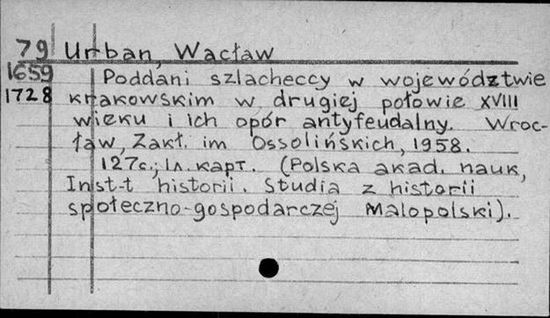 79 Urban, Wacław
1659 Poddani szlacheccy w województwie
1728 krakowskim w drugiej połowie XVIII
wieku i ich opór antyfeudalny. Wroc-
ław, Zakł. im Ossolińskich, 1958.
127c.; 1л. карт. (Polska akad. nauk,
Inst-t historii. Studia z historii
społeczno-gospodarczej Malopolski).